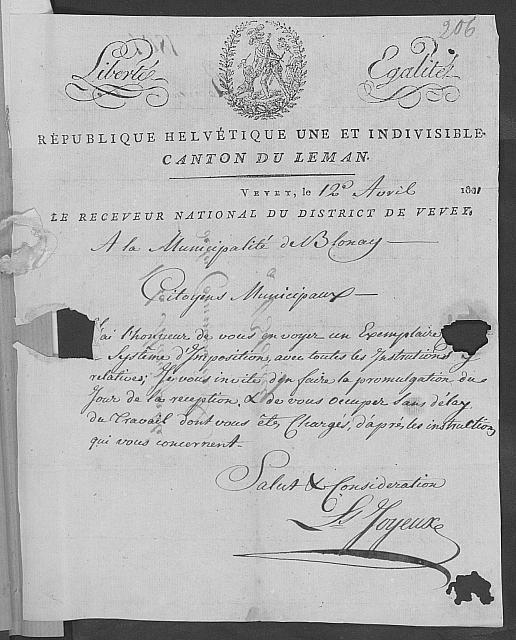 206
Liberté Egalité
RÉPUBLIQUE HELVÉTIQUE UNE ET INDIVISIBLE.
CANTON DU LEMAN.
VEVEY, le 12e Avril 1801
LE RECEVEUR NATIONAL DU DISTRICT DE VEVEY,
A la Municipalité de Blonay
Citoyens Municipaux
J'ai l'honneur de vous envoyer un Exemplaire
Système d'Imposition, avec toutes les Instructions y
relatives; Je vous invite d'en faire la promulgation du
Jour de la reception, & de vous occuper sans délay
du Travail dont vous êtes Chargés, d'après les instructions
qui vous concernent.
Salut & Consideration
Ls Joyeux